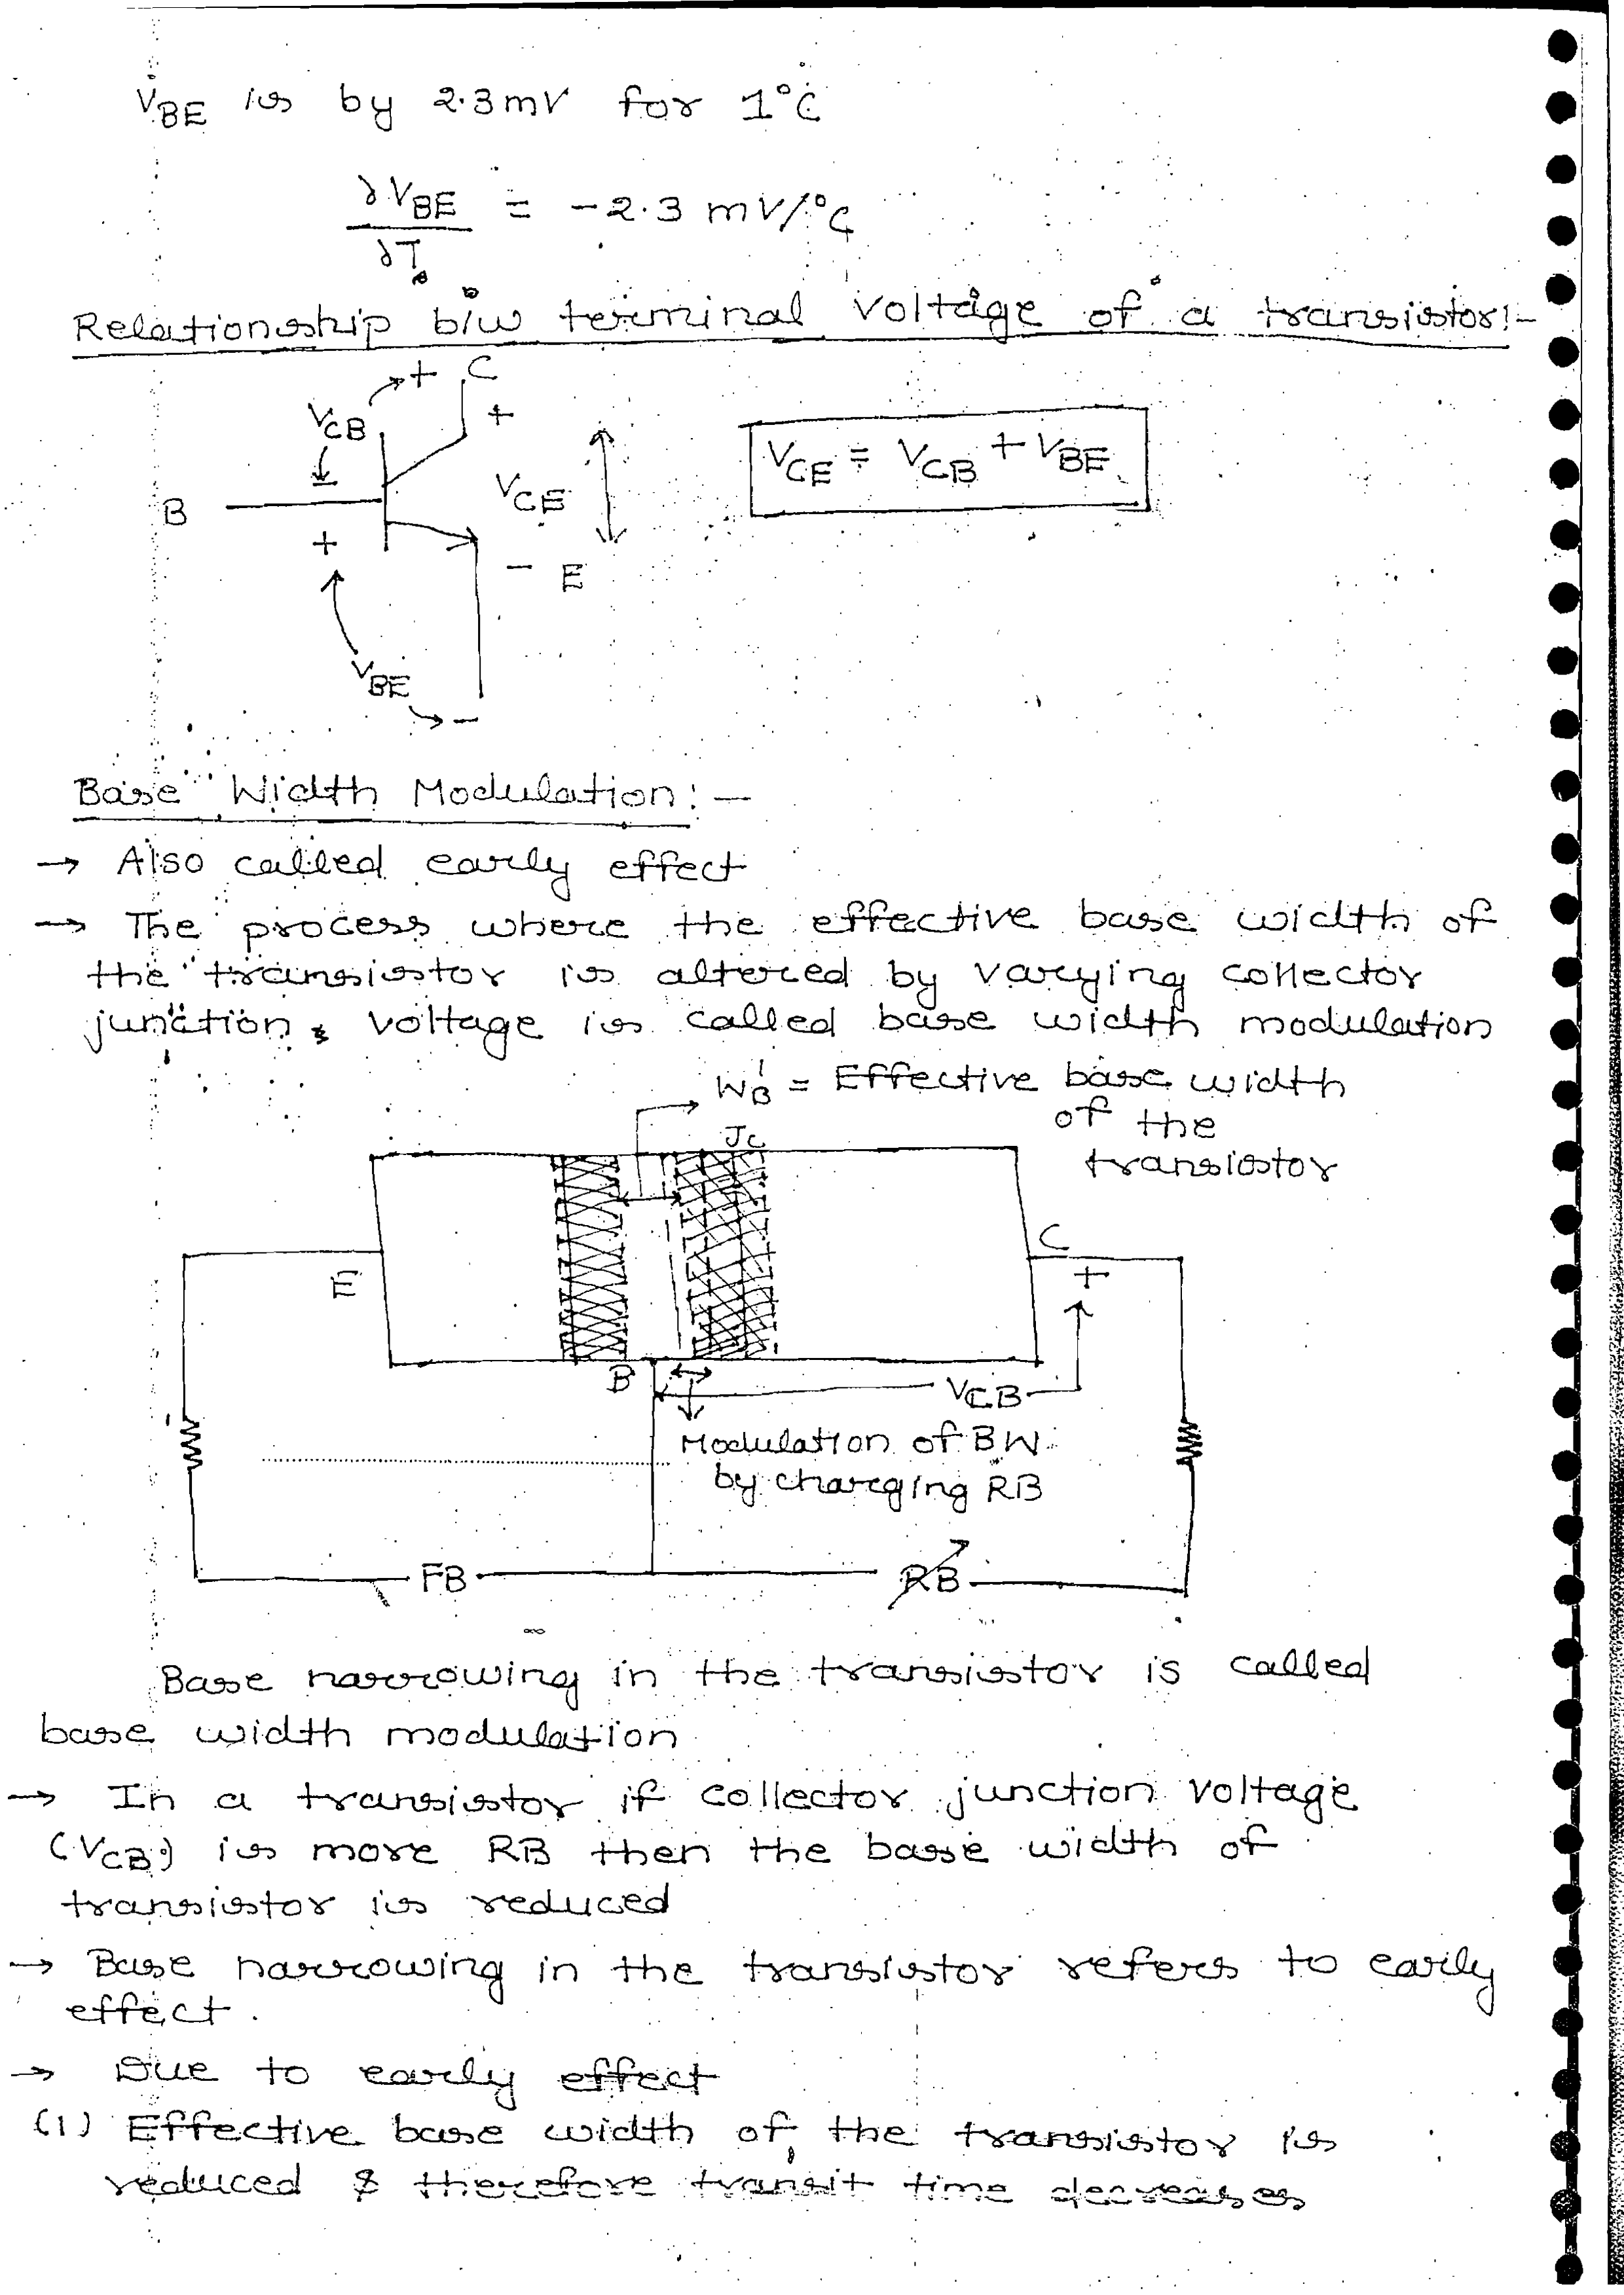 V_BE is by 2.3mV for 1°C
∂V_BE/∂T = -2.3 mV/°C
Relationship b/w terminal voltage of a transistor:-
+ C
V_CB +
-
V_CE = V_CB + V_BE
V_CE
B
+
- E
V_BE
-
Base Width Modulation:-
→ Also called early effect
→ The process where the effective base width of
the transistor is altered by varying collector
junction voltage is called base width modulation
W_B' = Effective base width
of the
transistor
J_C
C
E
+
B
V_CB
Modulation of BW
by charging RB
FB RB
Base narrowing in the transistor is called
base width modulation
→ In a transistor if collector junction voltage
(V_CB) is more RB then the base width of
transistor is reduced
→ Base narrowing in the transistor refers to early
effect.
→ Due to early effect
(1) Effective base width of the transistor is
reduced & therefore transit time decreases